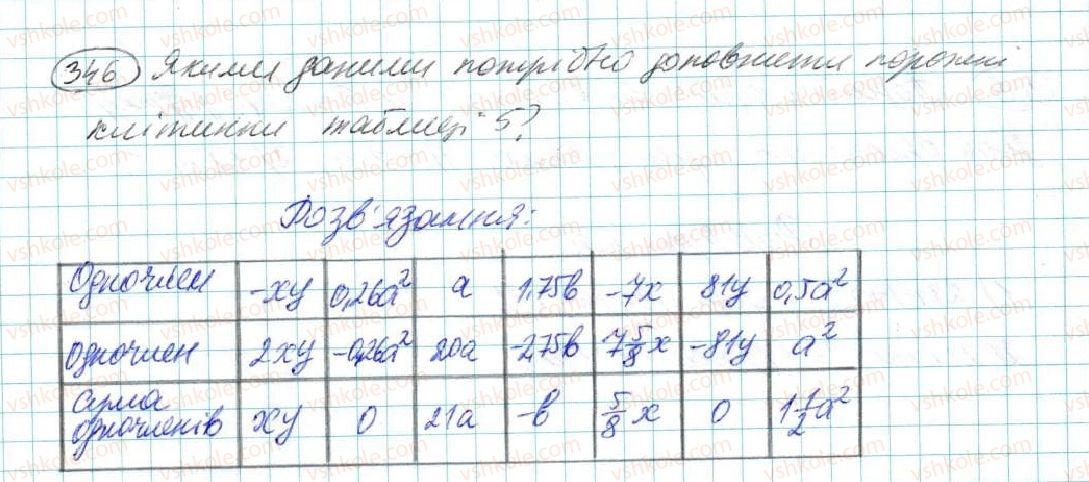 346 Якими даними потрібно доповнити порожні
клітинки таблиці 5?
Розв'язання:
Одночлен -xy 0,26a² a 1,75b -7x 81y 0,5a²
Одночлен 2xy -0,26a² 20a -2,75b 7 5/8 x -81y a²
Сума одночленів xy 0 21a -b 5/8 x 0 1 1/2 a²